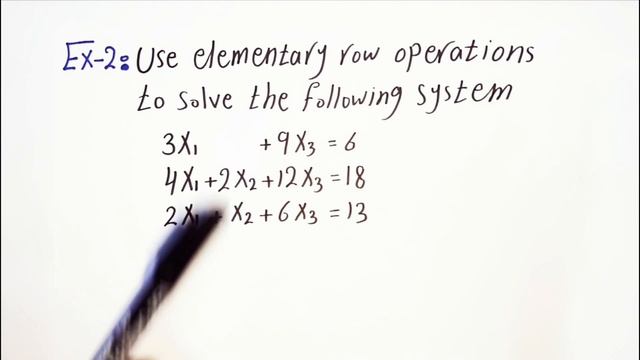 Ex-2: Use elementary row operations
to solve the following system
3x₁ + 9x₃ = 6
4x₁ + 2x₂ + 12x₃ = 18
2x₁ + x₂ + 6x₃ = 13